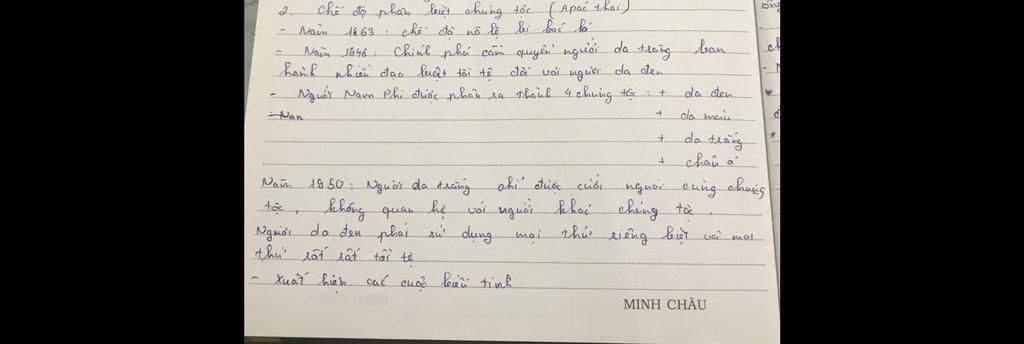 2. Chế độ phân biệt chủng tộc (Apac thai)
- Năm 1863: chế độ nô lệ bị bác bỏ
- Năm 1948: Chính phủ cầm quyền người da trắng ban
hành nhiều đạo luật tồi tệ đối với người da đen
- Người Nam Phi được phân ra thành 4 chủng tộc: + da đen
- Nan
+ da màu
+ da trắng
+ châu á
Năm 1950: Người da trắng chỉ được cưới người cùng chủng
tộc, không quan hệ với người khác chủng tộc.
Người da đen phải sử dụng mọi thứ riêng biệt và mọi
thứ rất rất tồi tệ
- Xuất hiện các cuộc biểu tình
MINH CHÂU